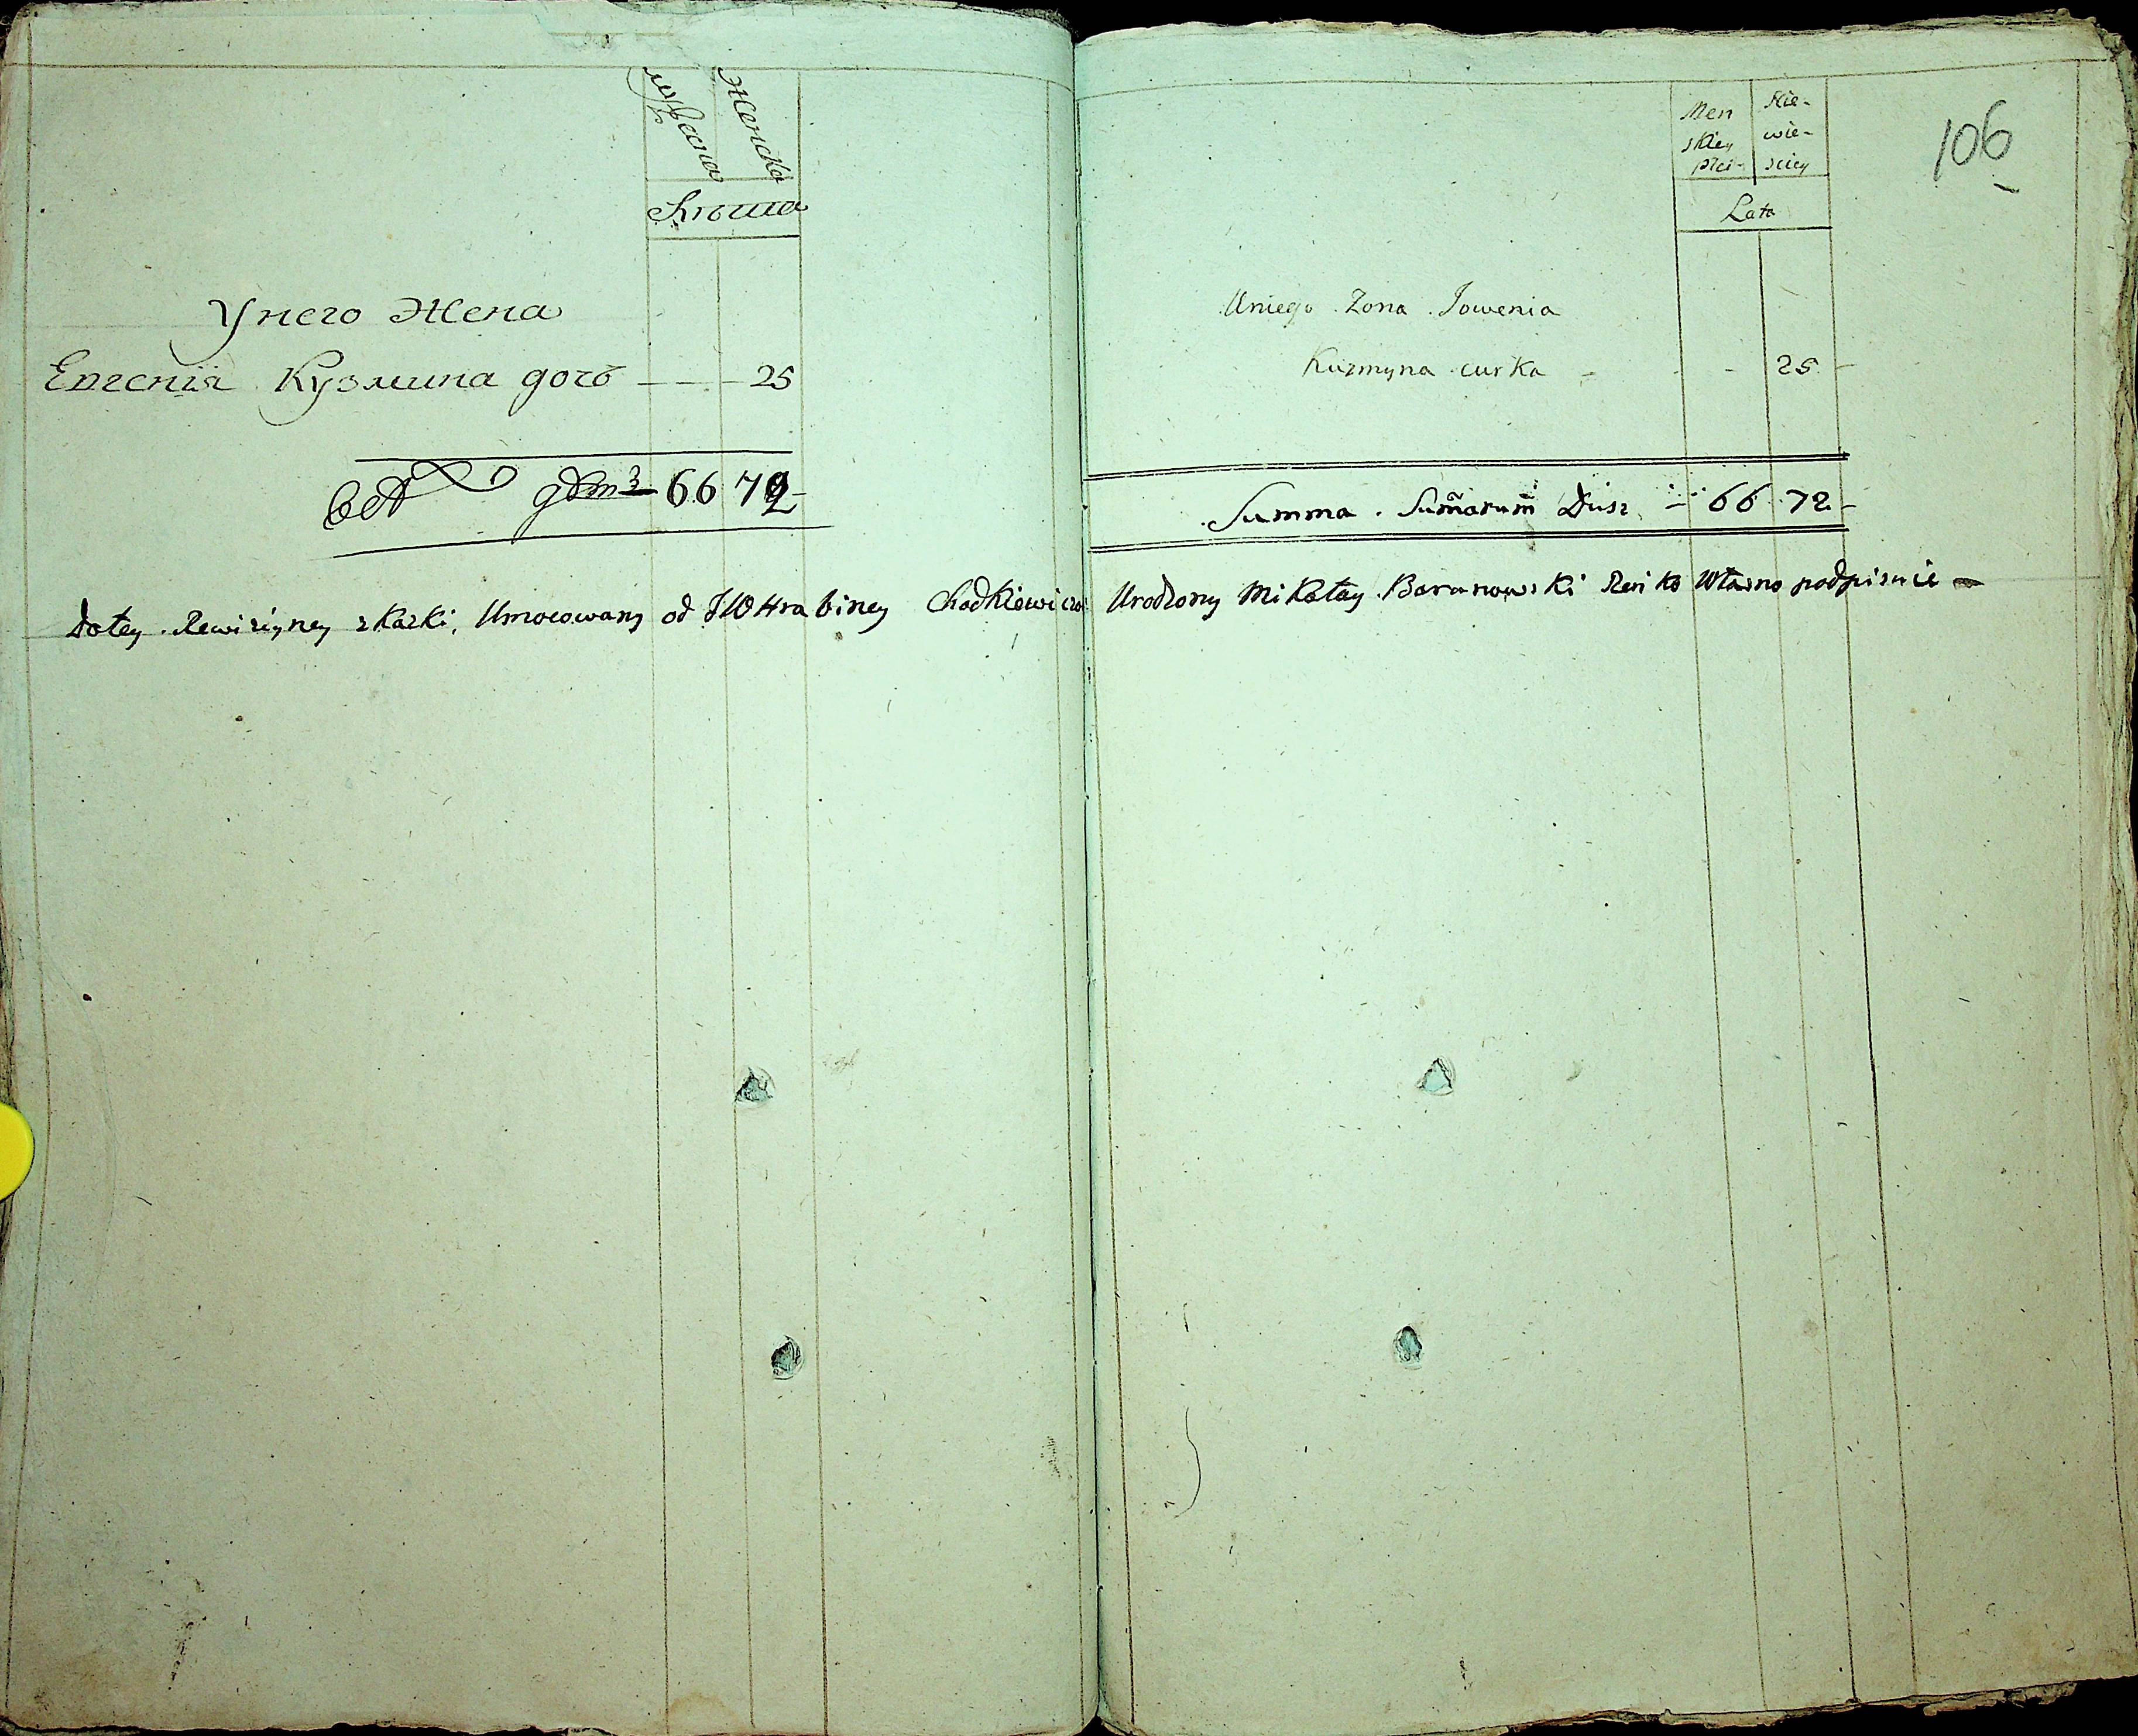 Женска
У него Жена
Евгения Кузмина дочь — — 25
66 72
Do tey Rewizyiney skazki, Umocowany od JW Hrabiney Chodkiewiczo Urodzony Mikołay Baranowski Renko Własno podpisuie —
Men skiey płci - Nie- wie- sciey
Lata
106
Uniego Zona Jowenia
Kuzmyna curka - - 25 -
Summa Sumarum Dusz 66 72 -